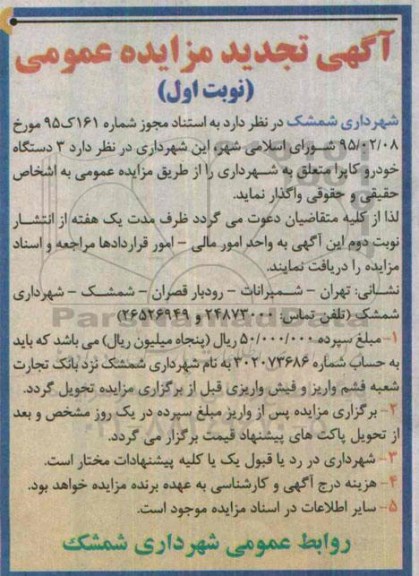 آگهی تجدید مزایده عمومی
(نوبت اول)
شهرداری شمشک در نظر دارد به استناد مجوز شماره ۱۶۱ک۹۵ مورخ
۹۵/۰۲/۰۸ شورای اسلامی شهر این شهرداری در نظر دارد ۳ دستگاه
خودرو کاپرا متعلق به شهرداری را از طریق مزایده عمومی به اشخاص
حقیقی و حقوقی واگذار نماید.
لذا از کلیه متقاضیان دعوت می گردد ظرف مدت یک هفته از انتشار
نوبت دوم این آگهی به واحد امور مالی - امور قراردادها مراجعه و اسناد
مزایده را دریافت نمایند.
نشانی: تهران - شمیرانات - رودبار قصران - شمشک - شهرداری
شمشک (تلفن تماس: ۲۴۸۷۳۰۰۰ و ۲۶۵۲۶۹۴۹)
۱- مبلغ سپرده ۵۰/۰۰۰/۰۰۰ ریال (پنجاه میلیون ریال) می باشد که باید
به حساب شماره ۳۰۲۰۷۳۶۸۶ به نام شهرداری شمشک نزد بانک تجارت
شعبه فشم واریز و فیش واریزی قبل از برگزاری مزایده تحویل گردد.
۲- برگزاری مزایده پس از واریز مبلغ سپرده در یک روز مشخص و بعد
از تحویل پاکت های پیشنهاد قیمت برگزار می گردد.
۳- شهرداری در رد یا قبول یک یا کلیه پیشنهادات مختار است.
۴- هزینه درج آگهی و کارشناسی به عهده برنده مزایده خواهد بود.
۵- سایر اطلاعات در اسناد مزایده موجود است.
روابط عمومی شهرداری شمشک